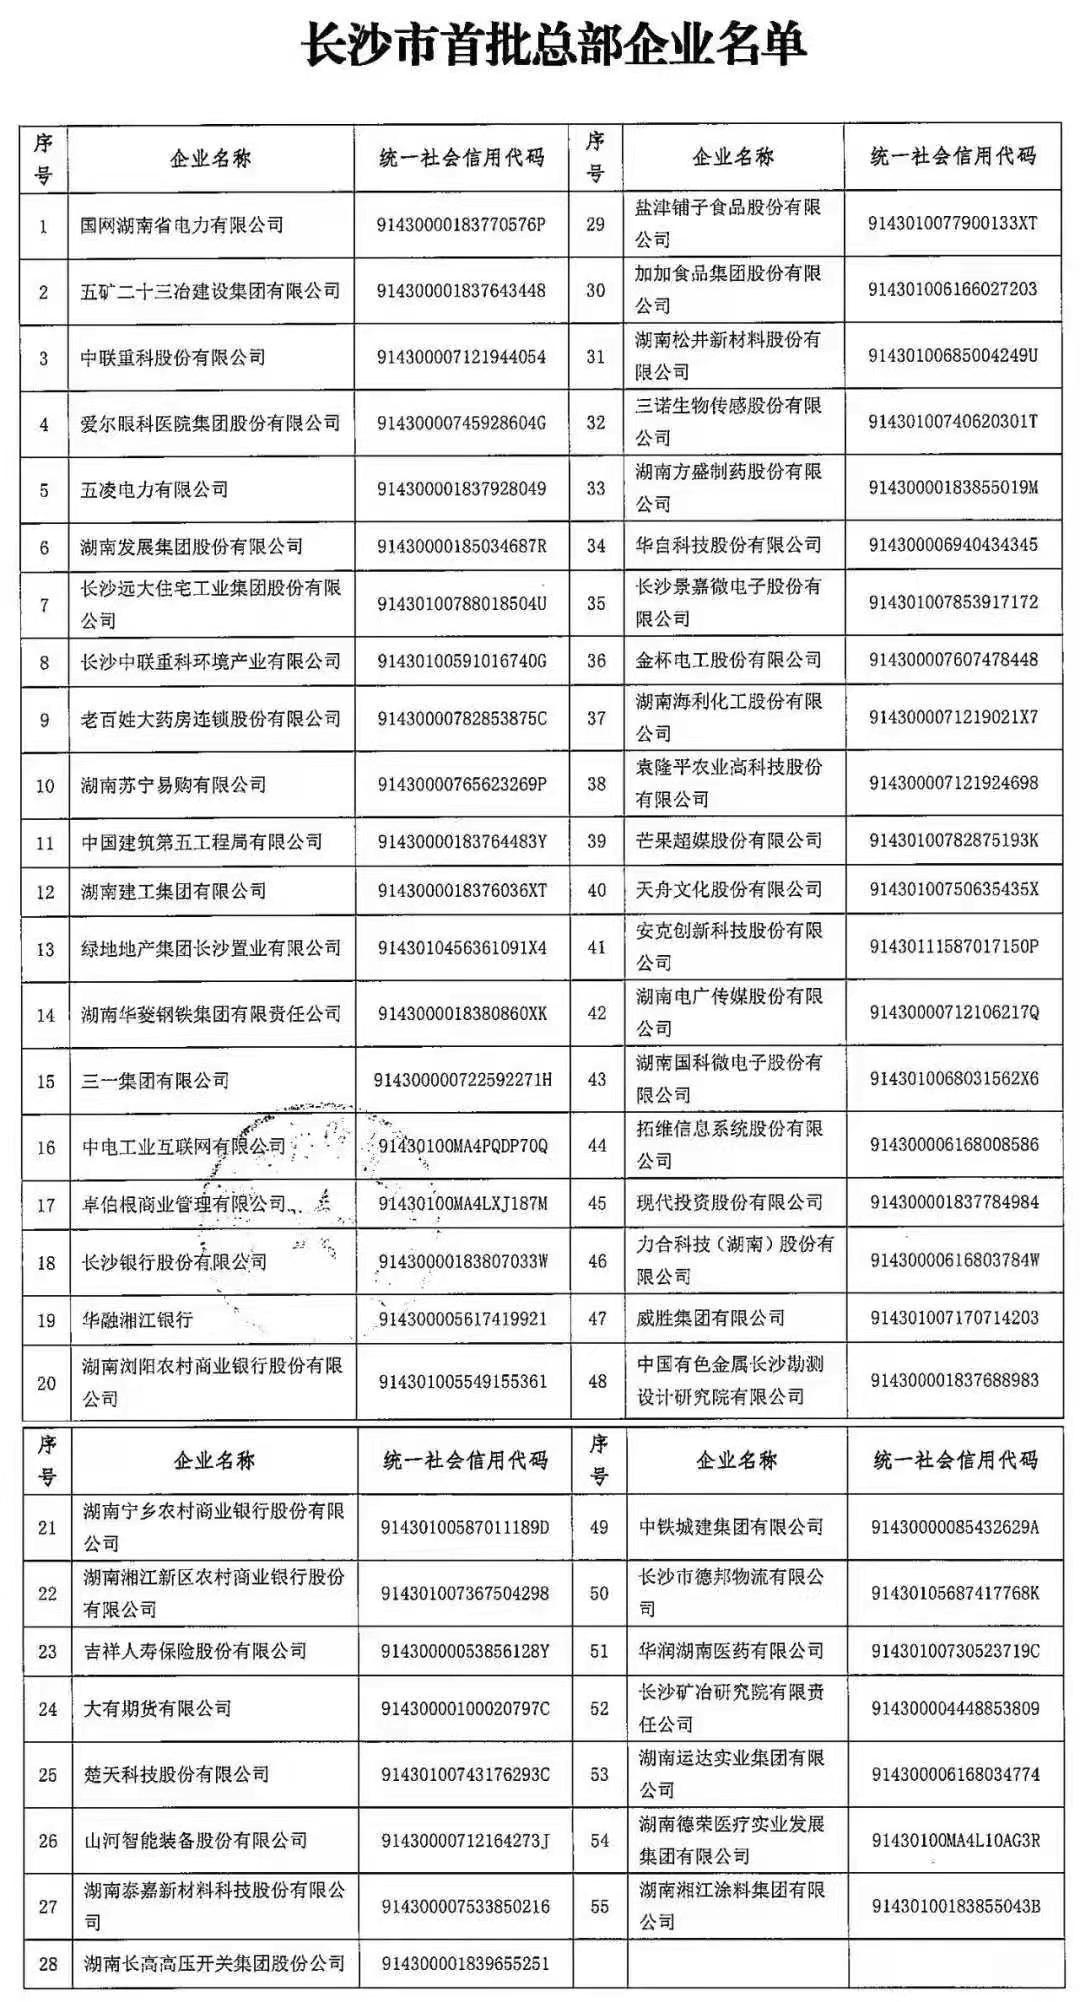 长沙市首批总部企业名单
序号 企业名称 统一社会信用代码 序号 企业名称 统一社会信用代码
1 国网湖南省电力有限公司 91430000183770576P 29 盐津铺子食品股份有限公司 9143010077900133XT
2 五矿二十三冶建设集团有限公司 914300001837643448 30 加加食品集团股份有限公司 914301006166027203
3 中联重科股份有限公司 914300007121944054 31 湖南松井新材料股份有限公司 91430100685004249U
4 爱尔眼科医院集团股份有限公司 91430000745928604G 32 三诺生物传感股份有限公司 91430100740620301T
5 五凌电力有限公司 914300001837928049 33 湖南方盛制药股份有限公司 91430000183855019M
6 湖南发展集团股份有限公司 91430000185034687R 34 华自科技股份有限公司 914300006940434345
7 长沙远大住宅工业集团股份有限公司 91430100788018504U 35 长沙景嘉微电子股份有限公司 914301007853917172
8 长沙中联重科环境产业有限公司 91430100591016740G 36 金杯电工股份有限公司 914300007607478448
9 老百姓大药房连锁股份有限公司 91430000782853875C 37 湖南海利化工股份有限公司 9143000071219021X7
10 湖南苏宁易购有限公司 91430000765623269P 38 袁隆平农业高科技股份有限公司 914300007121924698
11 中国建筑第五工程局有限公司 91430000183764483Y 39 芒果超媒股份有限公司 91430100782875193K
12 湖南建工集团有限公司 9143000018376036XT 40 天舟文化股份有限公司 91430100750635435X
13 绿地地产集团长沙置业有限公司 9143010456361091X4 41 安克创新科技股份有限公司 91430111587017150P
14 湖南华菱钢铁集团有限责任公司 9143000018380860XK 42 湖南电广传媒股份有限公司 91430000712106217Q
15 三一集团有限公司 914300000722592271H 43 湖南国科微电子股份有限公司 9143010068031562X6
16 中电工业互联网有限公司 91430100MA4PQDP70Q 44 拓维信息系统股份有限公司 914300006168008586
17 卓伯根商业管理有限公司 91430100MA4LXJ187M 45 现代投资股份有限公司 914300001837784984
18 长沙银行股份有限公司 91430000183807033W 46 力合科技（湖南）股份有限公司 91430000616803784W
19 华融湘江银行 914300005617419921 47 威胜集团有限公司 914301007170714203
20 湖南浏阳农村商业银行股份有限公司 914301005549155361 48 中国有色金属长沙勘测设计研究院有限公司 914300001837688983
序号 企业名称 统一社会信用代码 序号 企业名称 统一社会信用代码
21 湖南宁乡农村商业银行股份有限公司 91430100587011189D 49 中铁城建集团有限公司 91430000085432629A
22 湖南湘江新区农村商业银行股份有限公司 914301007367504298 50 长沙市德邦物流有限公司 91430105687417768K
23 吉祥人寿保险股份有限公司 91430000053856128Y 51 华润湖南医药有限公司 91430100730523719C
24 大有期货有限公司 91430000100020797C 52 长沙矿冶研究院有限责任公司 914300004448853809
25 楚天科技股份有限公司 91430100743176293C 53 湖南运达实业集团有限公司 914300006168034774
26 山河智能装备股份有限公司 91430000712164273J 54 湖南德荣医疗实业发展集团有限公司 91430100MA4L10AG3R
27 湖南泰嘉新材料科技股份有限公司 914300007533850216 55 湖南湘江涂料集团有限公司 91430100183855043B
28 湖南长高高压开关集团股份公司 914300001839655251